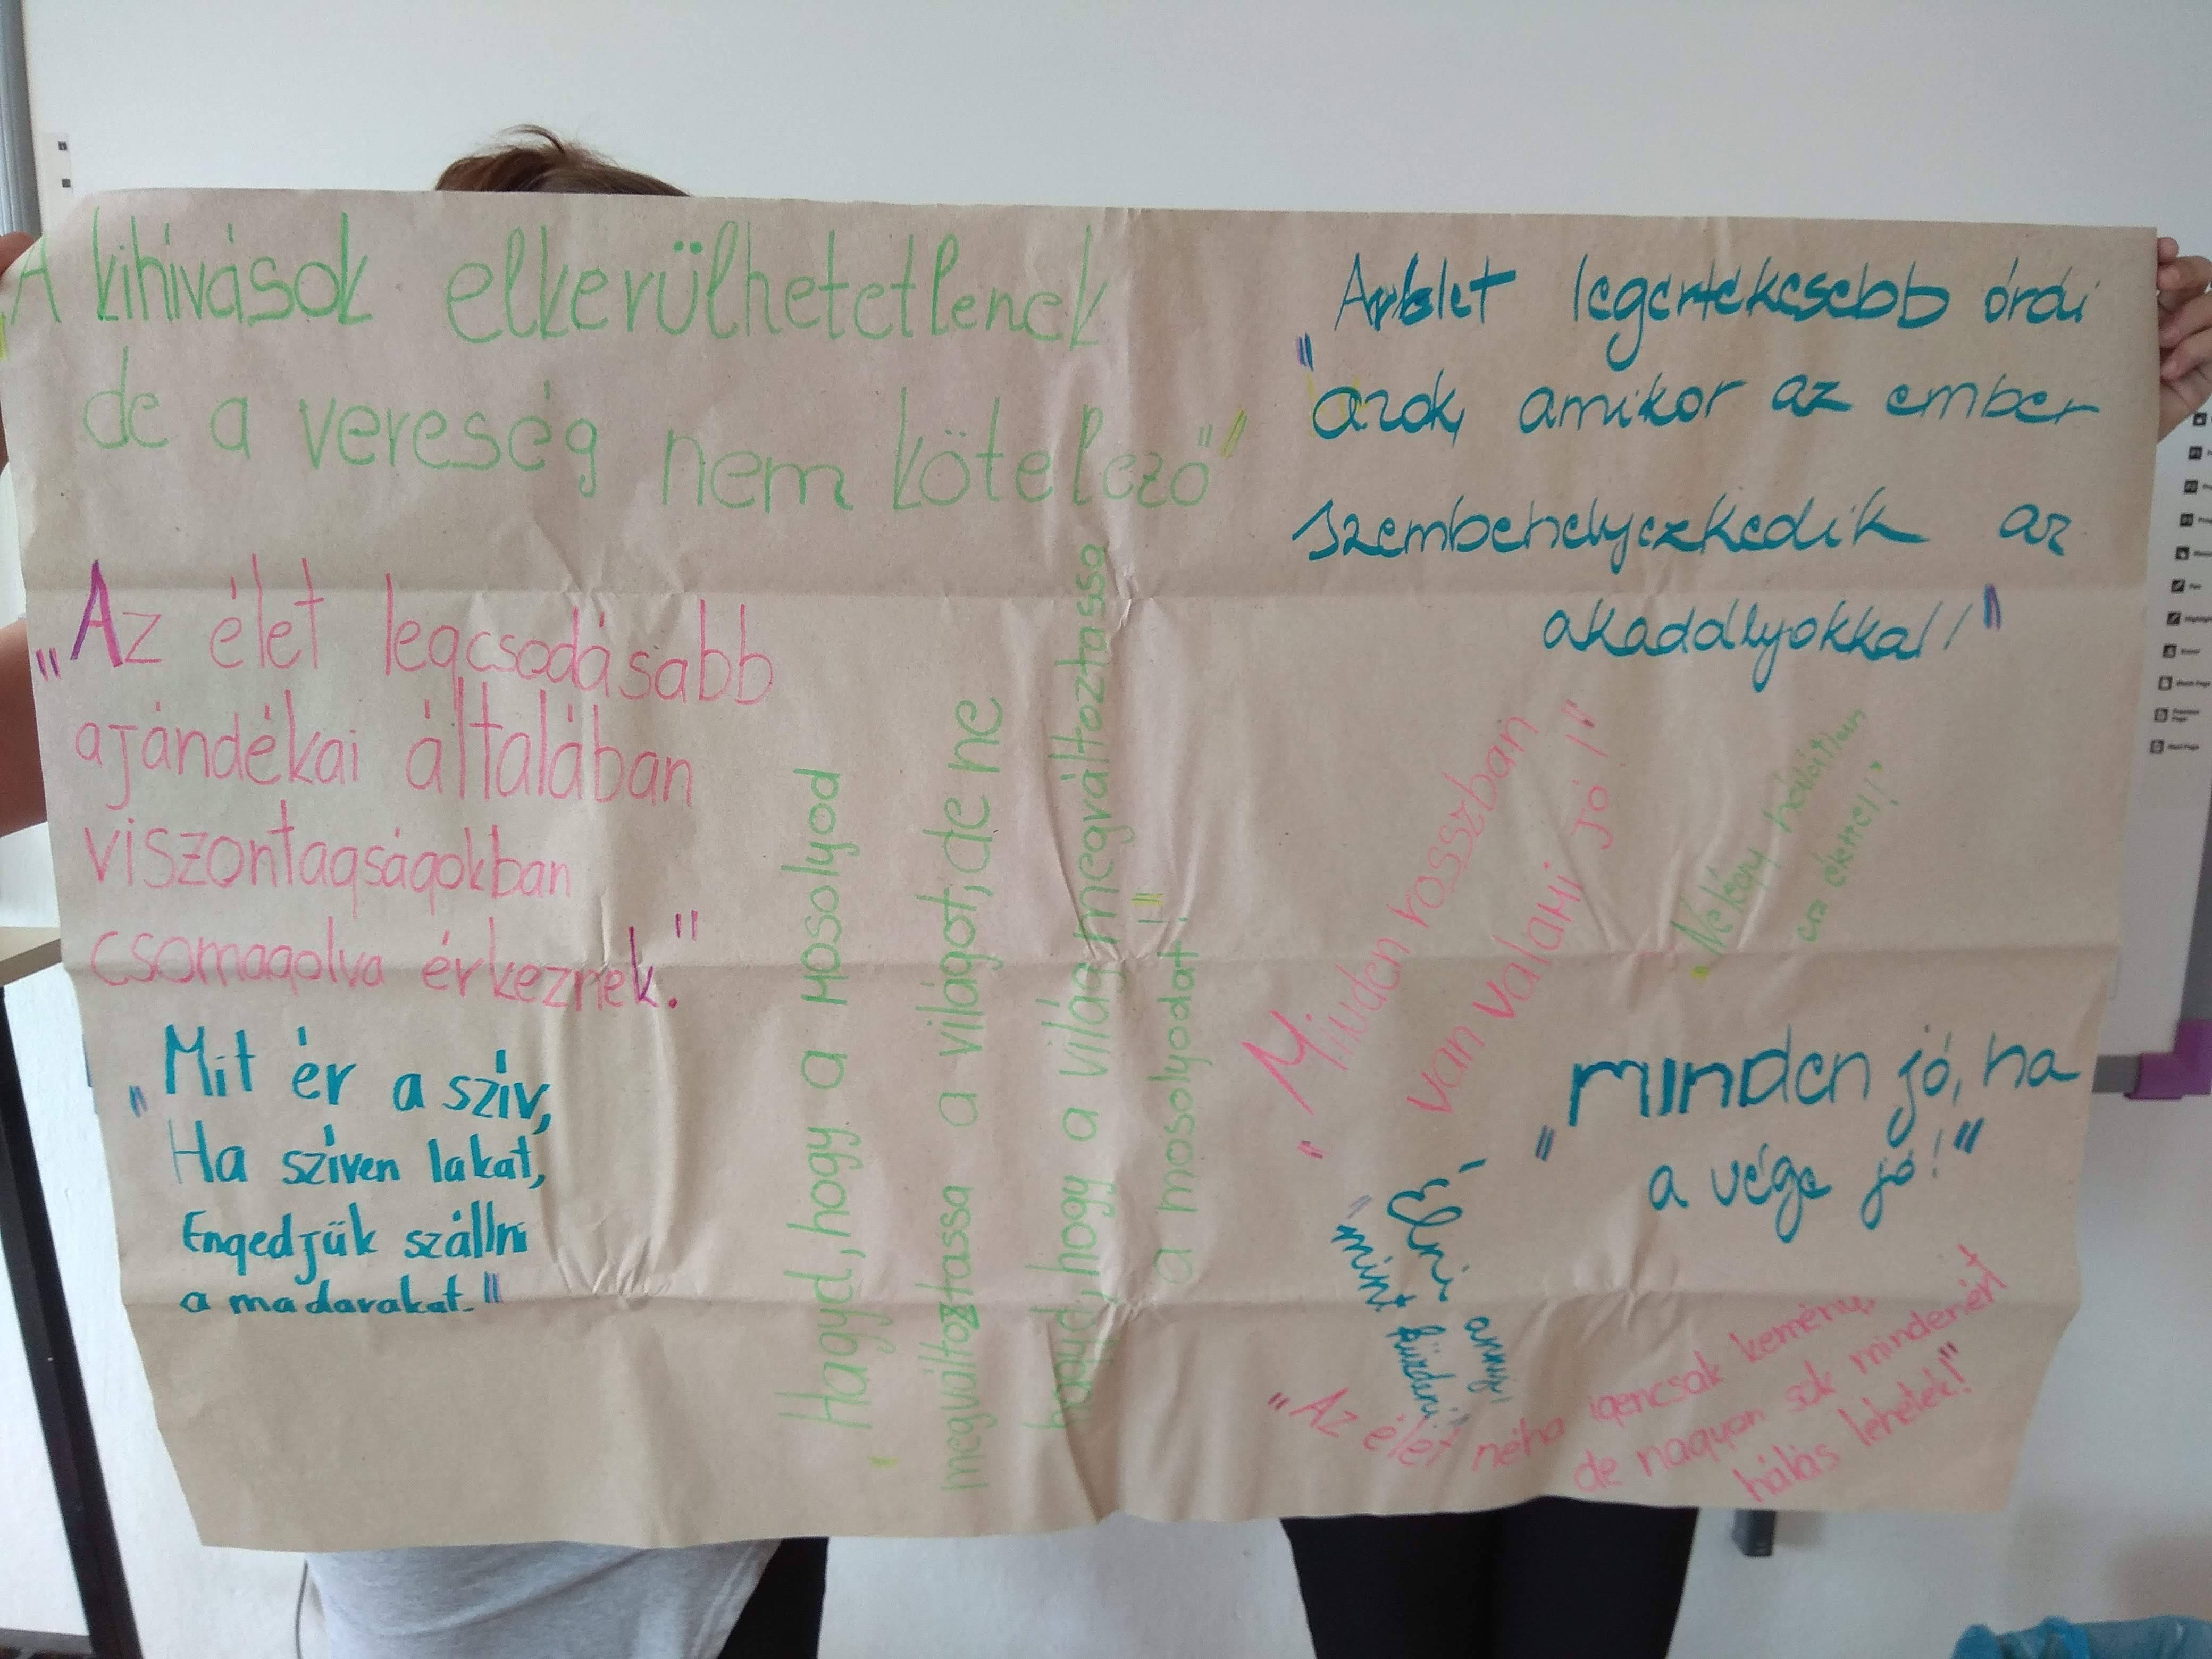 „A kihívások elkerülhetetlenek
de a vereség nem kötelező"
„Az élet legcsodásabb
ajándékai általában
viszontagságokban
csomagolva érkeznek."
„Mit ér a szív,
Ha szíven lakat,
Engedjük szállni
a madarakat."
„Hagyd, hogy a mosolyod
megváltoztassa a világot, de ne
hagyd, hogy a világ megváltoztassa
a mosolyodat!"
legértékesebb órái
azok, amikor az ember
szembehelyezkedik az
akadályokkal!"
„Minden rosszban
van valami jó!"
„Ne légy hálátlan
az élettel!"
„minden jó, ha
a vége jó!"
„Élni annyi,
mint küzdeni"
„Az élet néha igencsak kemény,
de nagyon sok mindenért
hálás lehetek!"